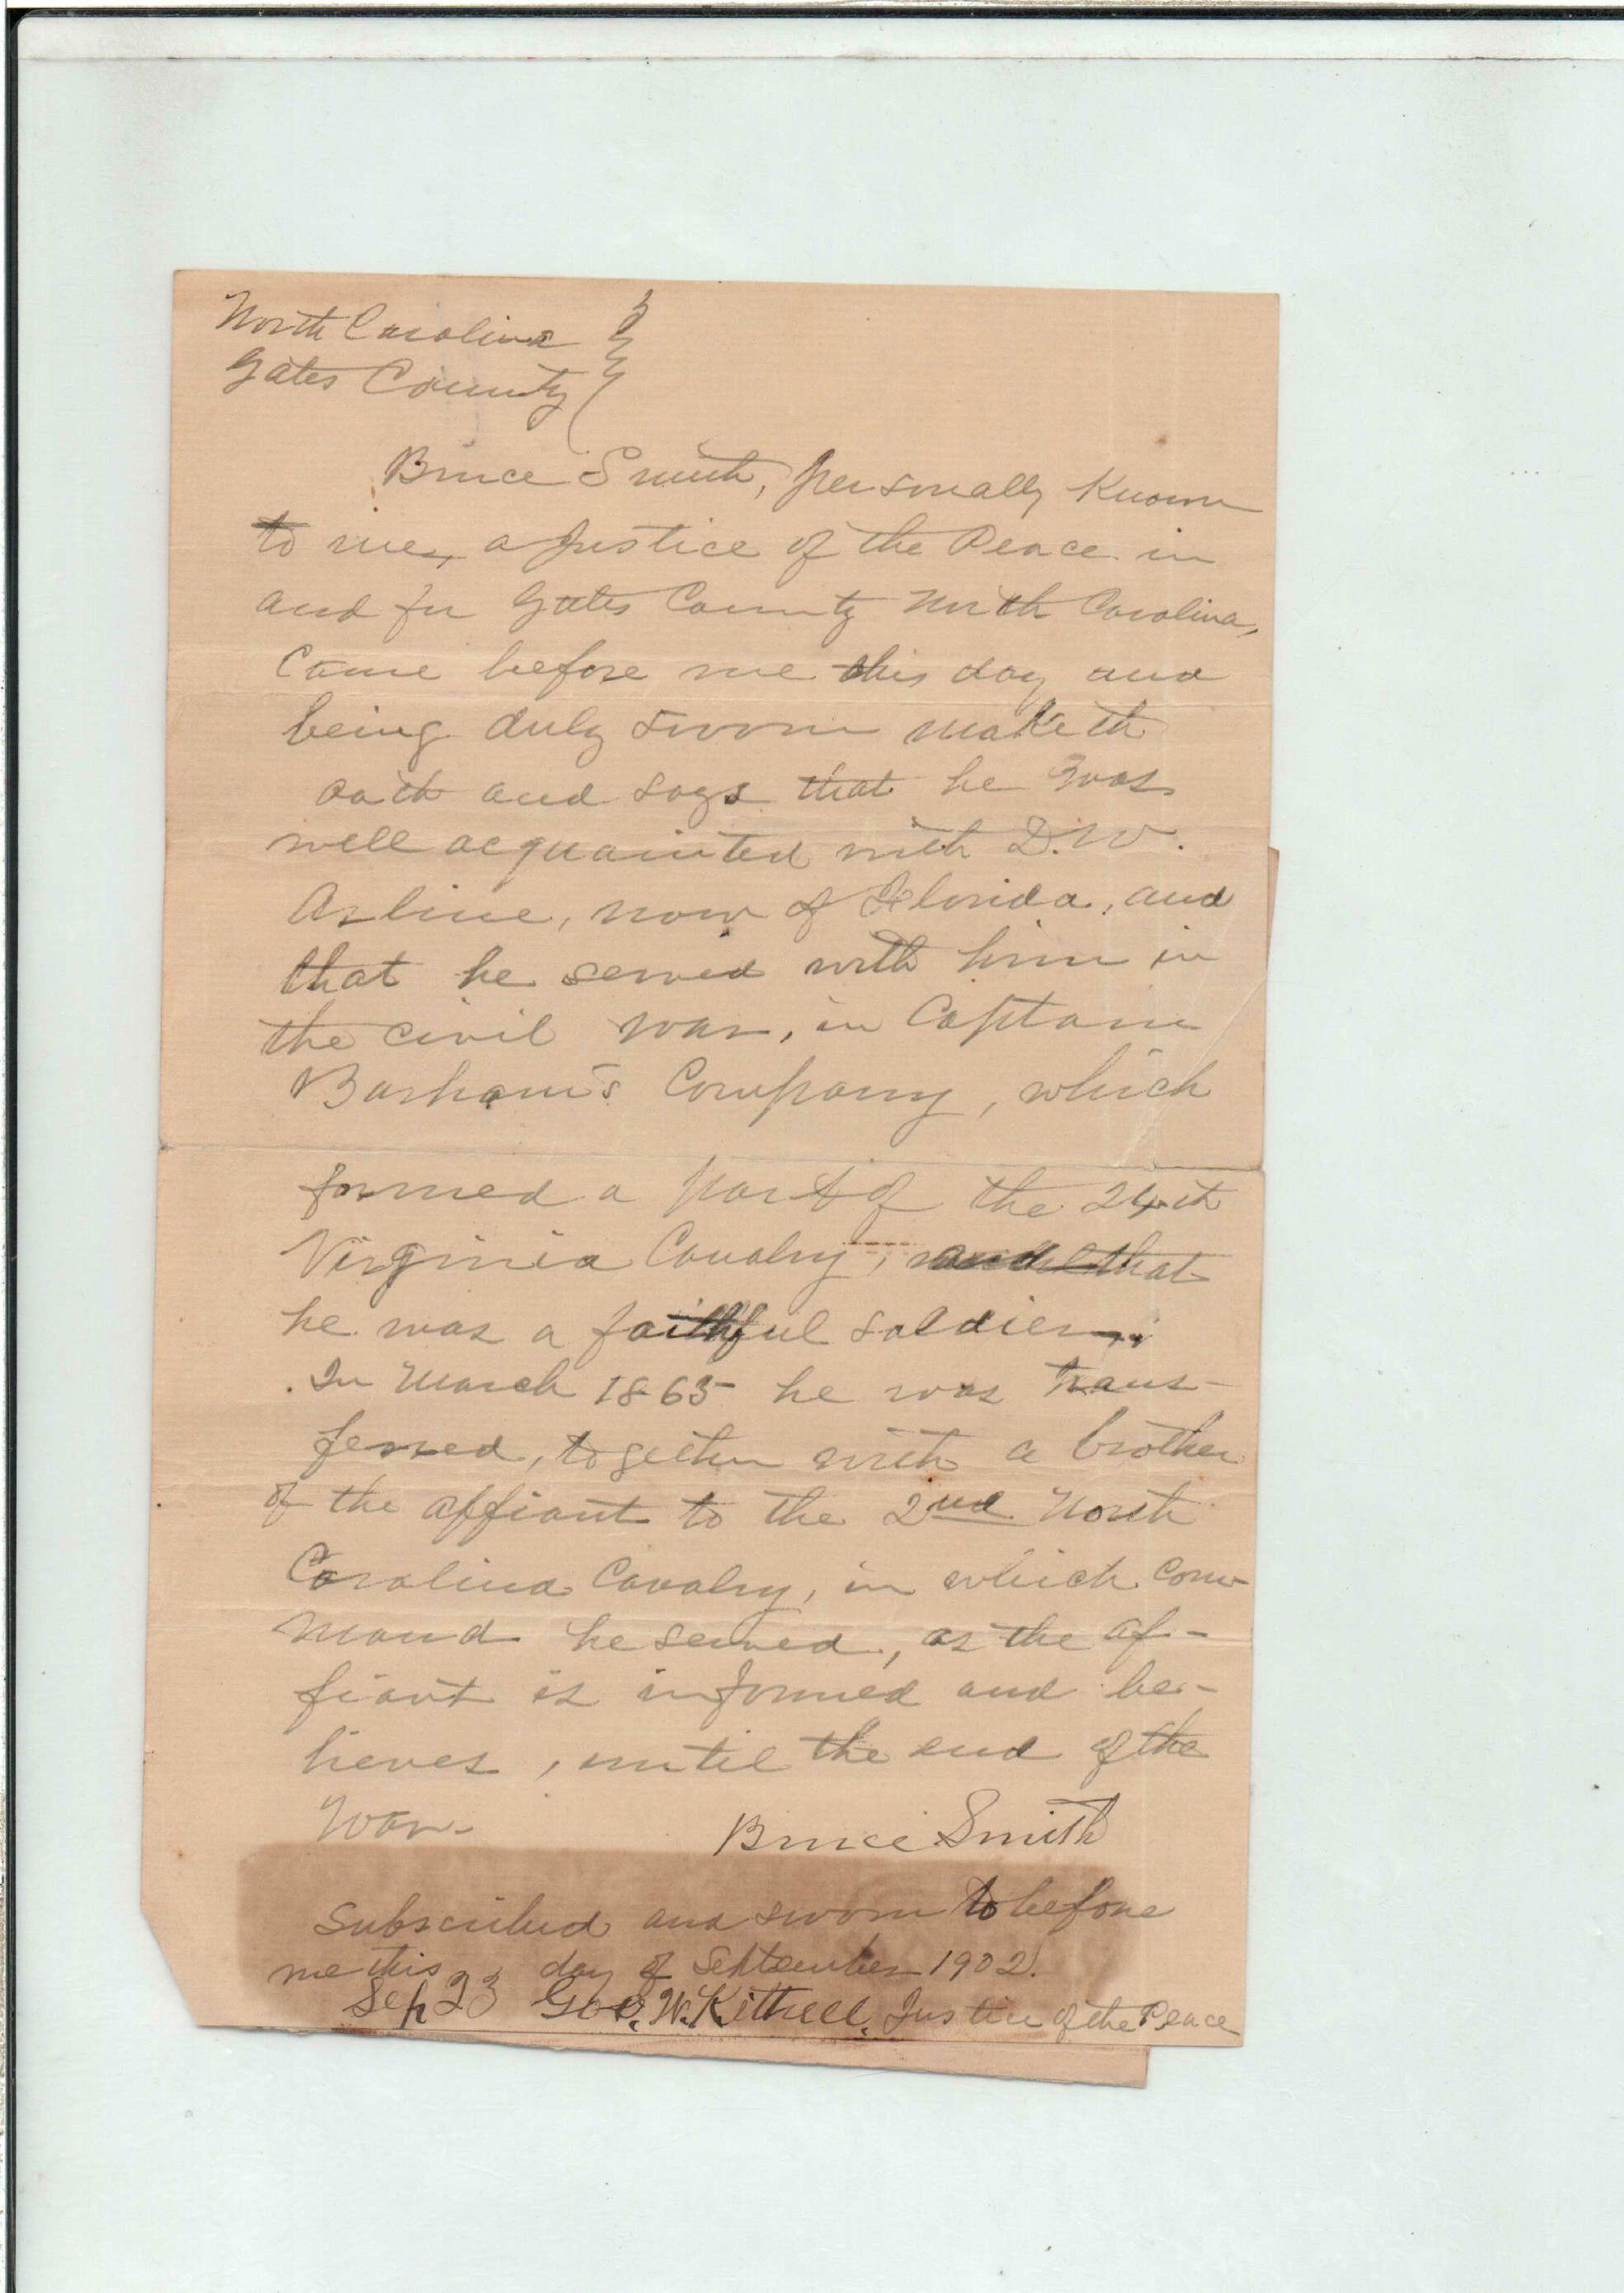 North Carolina }
Gates County }
Bruce Smith, personally known
to me, a Justice of the Peace in
and for Gates County North Carolina,
Came before me this day and
being duly sworn maketh
oath and says that he was
well acquainted with D.W.
Arline, now of Florida, and
that he served with him in
the civil war, in Captain
Barham's Company, which
formed a part of the 24th
Virginia Cavalry, and that
he was a faithful soldier.
In March 1865 he was trans-
ferred, together with a brother
of the affiant to the 2nd North
Carolina Cavalry, in which com-
mand he served, as the af-
fiant is informed and be-
lieves, until the end of the
War.
Bruce Smith
Subscribed and sworn to before
me this day of September 1902.
Sep 23 Geo. W. Kittrell, Justice of the Peace